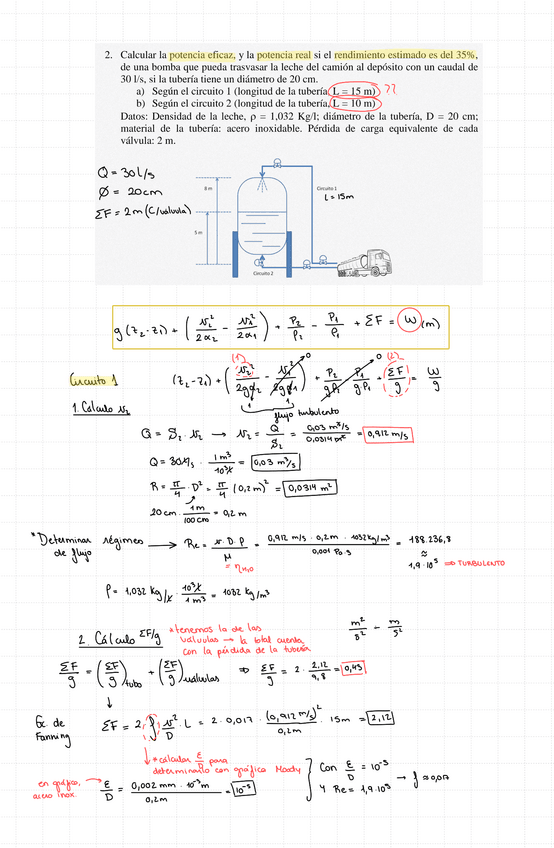 2. Calcular la potencia eficaz, y la potencia real si el rendimiento estimado es del 35%,
de una bomba que pueda trasvasar la leche del camión al depósito con un caudal de
30 l/s, si la tubería tiene un diámetro de 20 cm.
a) Según el circuito 1 (longitud de la tubería L = 15 m) ??
b) Según el circuito 2 (longitud de la tubería, L = 10 m)
Datos: Densidad de la leche, ρ = 1,032 Kg/l; diámetro de la tubería, D = 20 cm;
material de la tubería: acero inoxidable. Pérdida de carga equivalente de cada
válvula: 2 m.
Q = 30 l/s
Ø = 20cm
ΣF = 2m (C/válvula)
8 m
5 m
Circuito 1
L = 15m
Circuito 2
g (z₂-z₁) + (v₂²/2α₂ - v₁²/2α₁) + P₂/ρ₂ - P₁/ρ₁ + ΣF = W (m)
(1) (2)
Circuito 1 (z₂-z₁) + (v₂²/2gα₂ - v₁²/2gα₁) + P₂/gρ₂ - P₁/gρ₁ + ΣF/g = W/g
flujo turbulento
1. Cálculo v₂
Q = S₂ · v₂ → v₂ = Q/S₂ = 0,03 m³/s / 0,0314 m² = 0,912 m/s
Q = 30 l/s · 1 m³/10³ l = 0,03 m³/s
R = π/4 · D² = π/4 (0,2 m)² = 0,0314 m²
20 cm · 1 m/100 cm = 0,2 m
*Determinar régimes de flujo → Re = v · D · ρ/μ = 0,912 m/s · 0,2m · 1032 kg/m³ / 0,001 Pa·s = 188.236,8
≈
1,9 · 10⁵ ⇒ TURBULENTO
= η H₂O
ρ = 1,032 kg/l · 10³ l/1 m³ = 1032 kg/m³
2. Cálculo ΣF/g
*tenemos la de las
válvulas → la total cuenta
con la pérdida de la tubería
m²/s² - m/s²
ΣF/g = (ΣF/g) tubo + (ΣF/g) válvulas ⇒ ΣF/g = 2 · 2,12/9,8 = 0,43
↓
Ec. de Fanning ΣF = 2 f v²/D · L = 2 · 0,017 · (0,912 m/s)²/0,2m · 15m = 2,12
*calcular ε/D para
determinarlo con gráfica Moody
en gráfico,
acero inox.
ε/D = 0,002 mm · 10⁻³ m / 0,2m = 10⁻⁵
Con ε/D = 10⁻⁵
y Re = 1,9·10⁵ → f ≈ 0,017